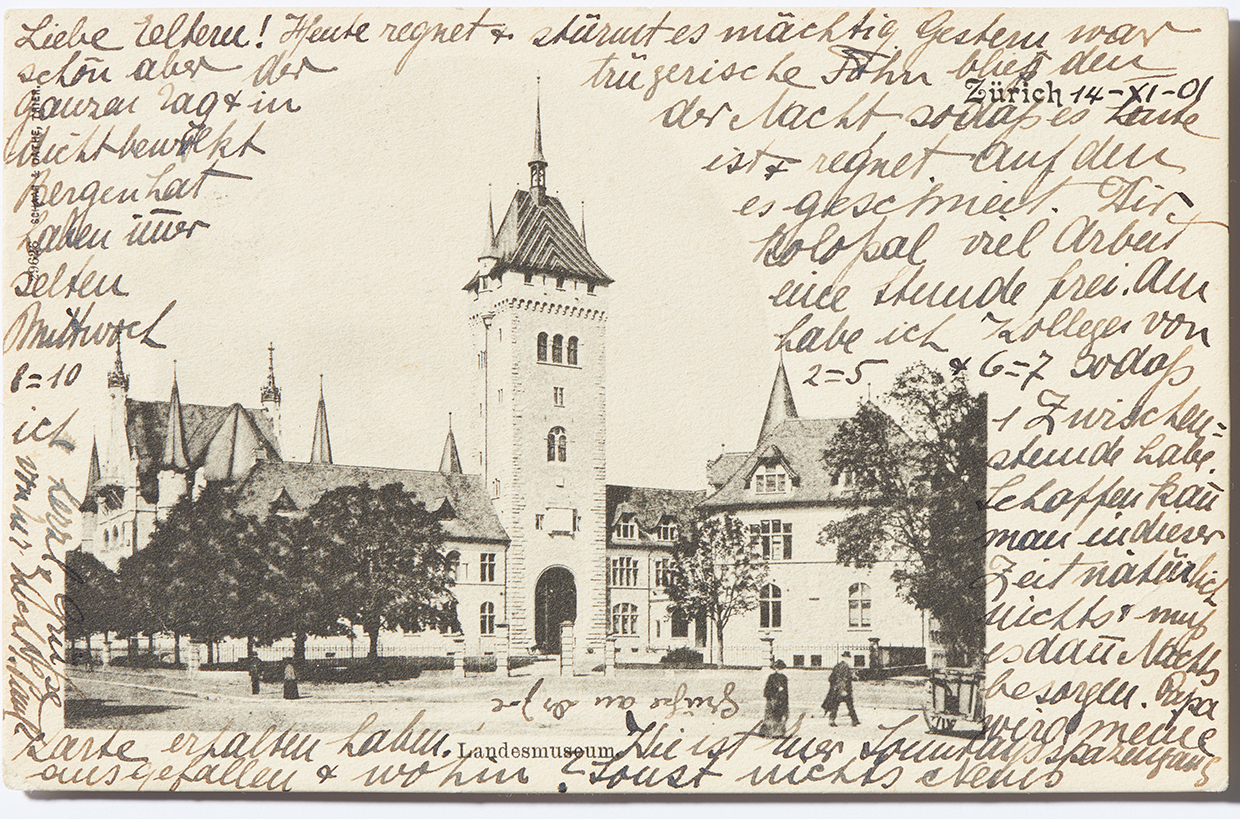 Liebe Eltern! Heute regnet & stürmt es mächtig. Gestern war
schön aber der trügerische Föhn blies den
ganzen Tag & in der Nacht sodaß es heute
dicht bewölkt ist & regnet auf den
Bergen hat es geschneit. Wir
haben immer kolossal viel Arbeit
selten eine Stunde frei. Am
Mittwoch habe ich Kolleges von
8=10 2=5 & 6=7 sodaß
ich 1 Zwischen=
stunde habe.
Schaffen kann
man in dieser
Zeit natürlich
nichts & muß
es dann Nachts
besorgen. Papa
wird meine
Karte erhalten haben. Wie ist der Sonntagsspaziergang
ausgefallen & wohin? Sonst nichts Neues
Grüße an
Zürich 14-XI-01
Landesmuseum